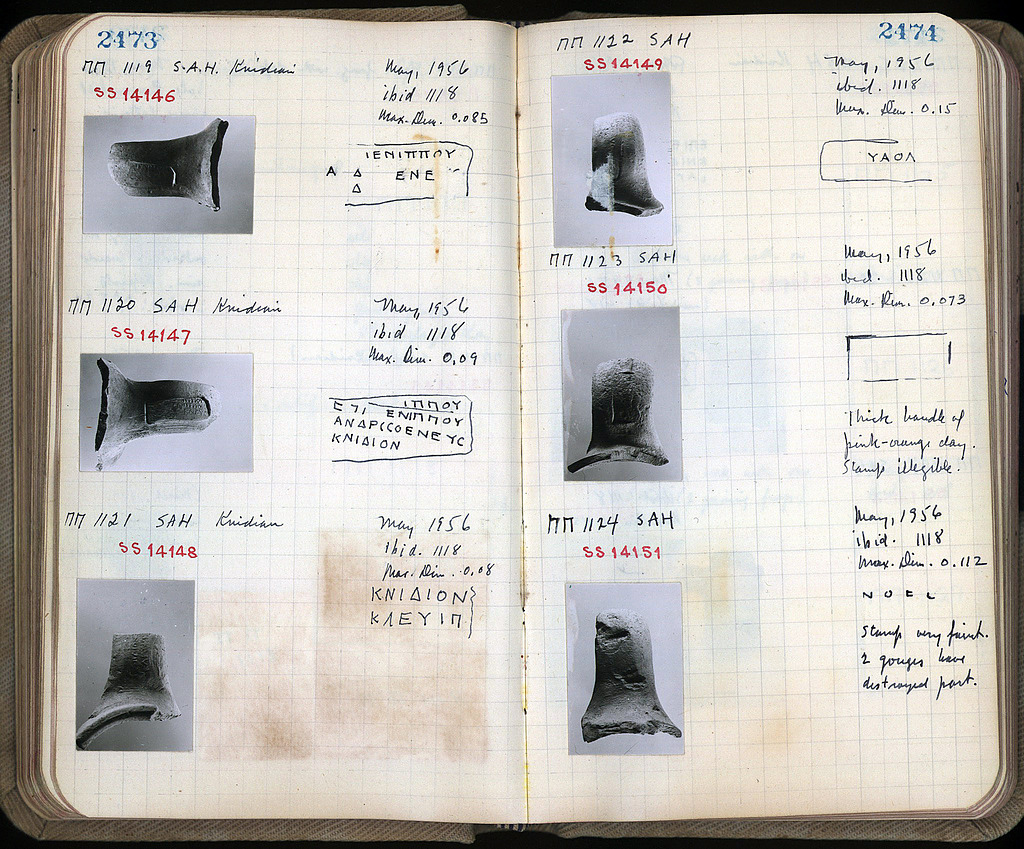 2473
ΠΠ 1119 S.A.H. Knidian
SS 14146
May, 1956
ibid 1118
Max. Dim. 0.085
ΙΕΝΙΠΠΟΥ
Α Δ ΕΝΕ
Δ
ΠΠ 1120 SAH Knidian
SS 14147
May 1956
ibid 1118
Max. Dim. 0.09
ΙΠΠΟΥ
ΕΝΙΠΠΟΥ
ΚΝΙΔΙΟΝ
ΠΠ 1121 SAH Knidian
SS 14148
May 1956
ibid. 1118
Max. Dim. 0.08
ΚΝΙΔΙΟΝ
ΚΛΕΥΙΠ
2474
ΠΠ 1122 SAH
SS 14149
May, 1956
ibid. 1118
Max. Dim. 0.15
ΥΑΟΛ
ΠΠ 1123 SAH
SS 14150
May, 1956
ibid. 1118
Max. Dim. 0.073
Thick handle of
pink-orange clay.
Stamp illegible.
ΠΠ 1124 SAH
SS 14151
May, 1956
ibid. 1118
Max. Dim. 0.112
Stamp very faint.
2 gouges have
distroyed part.